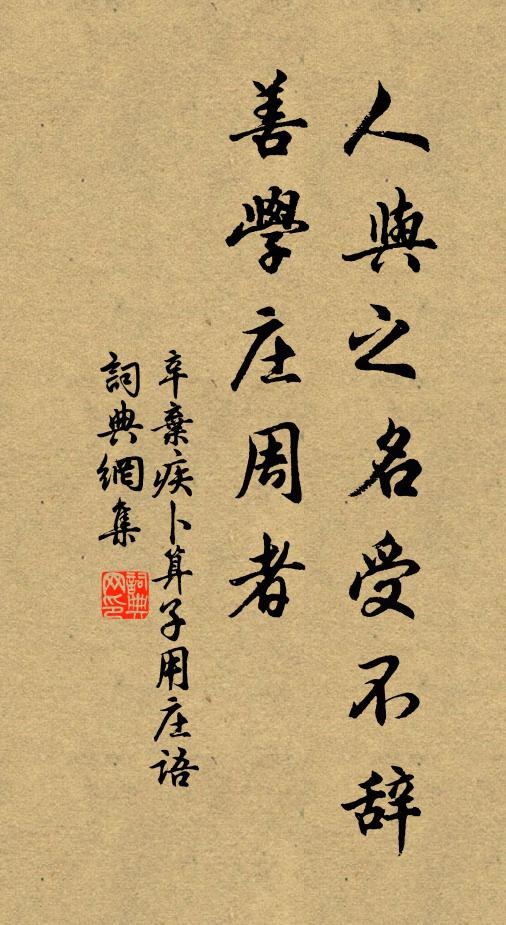 人與之名受不辞
善學庄周者
辛棄疾卜算子用庄語
詞典網集
詞典
网印